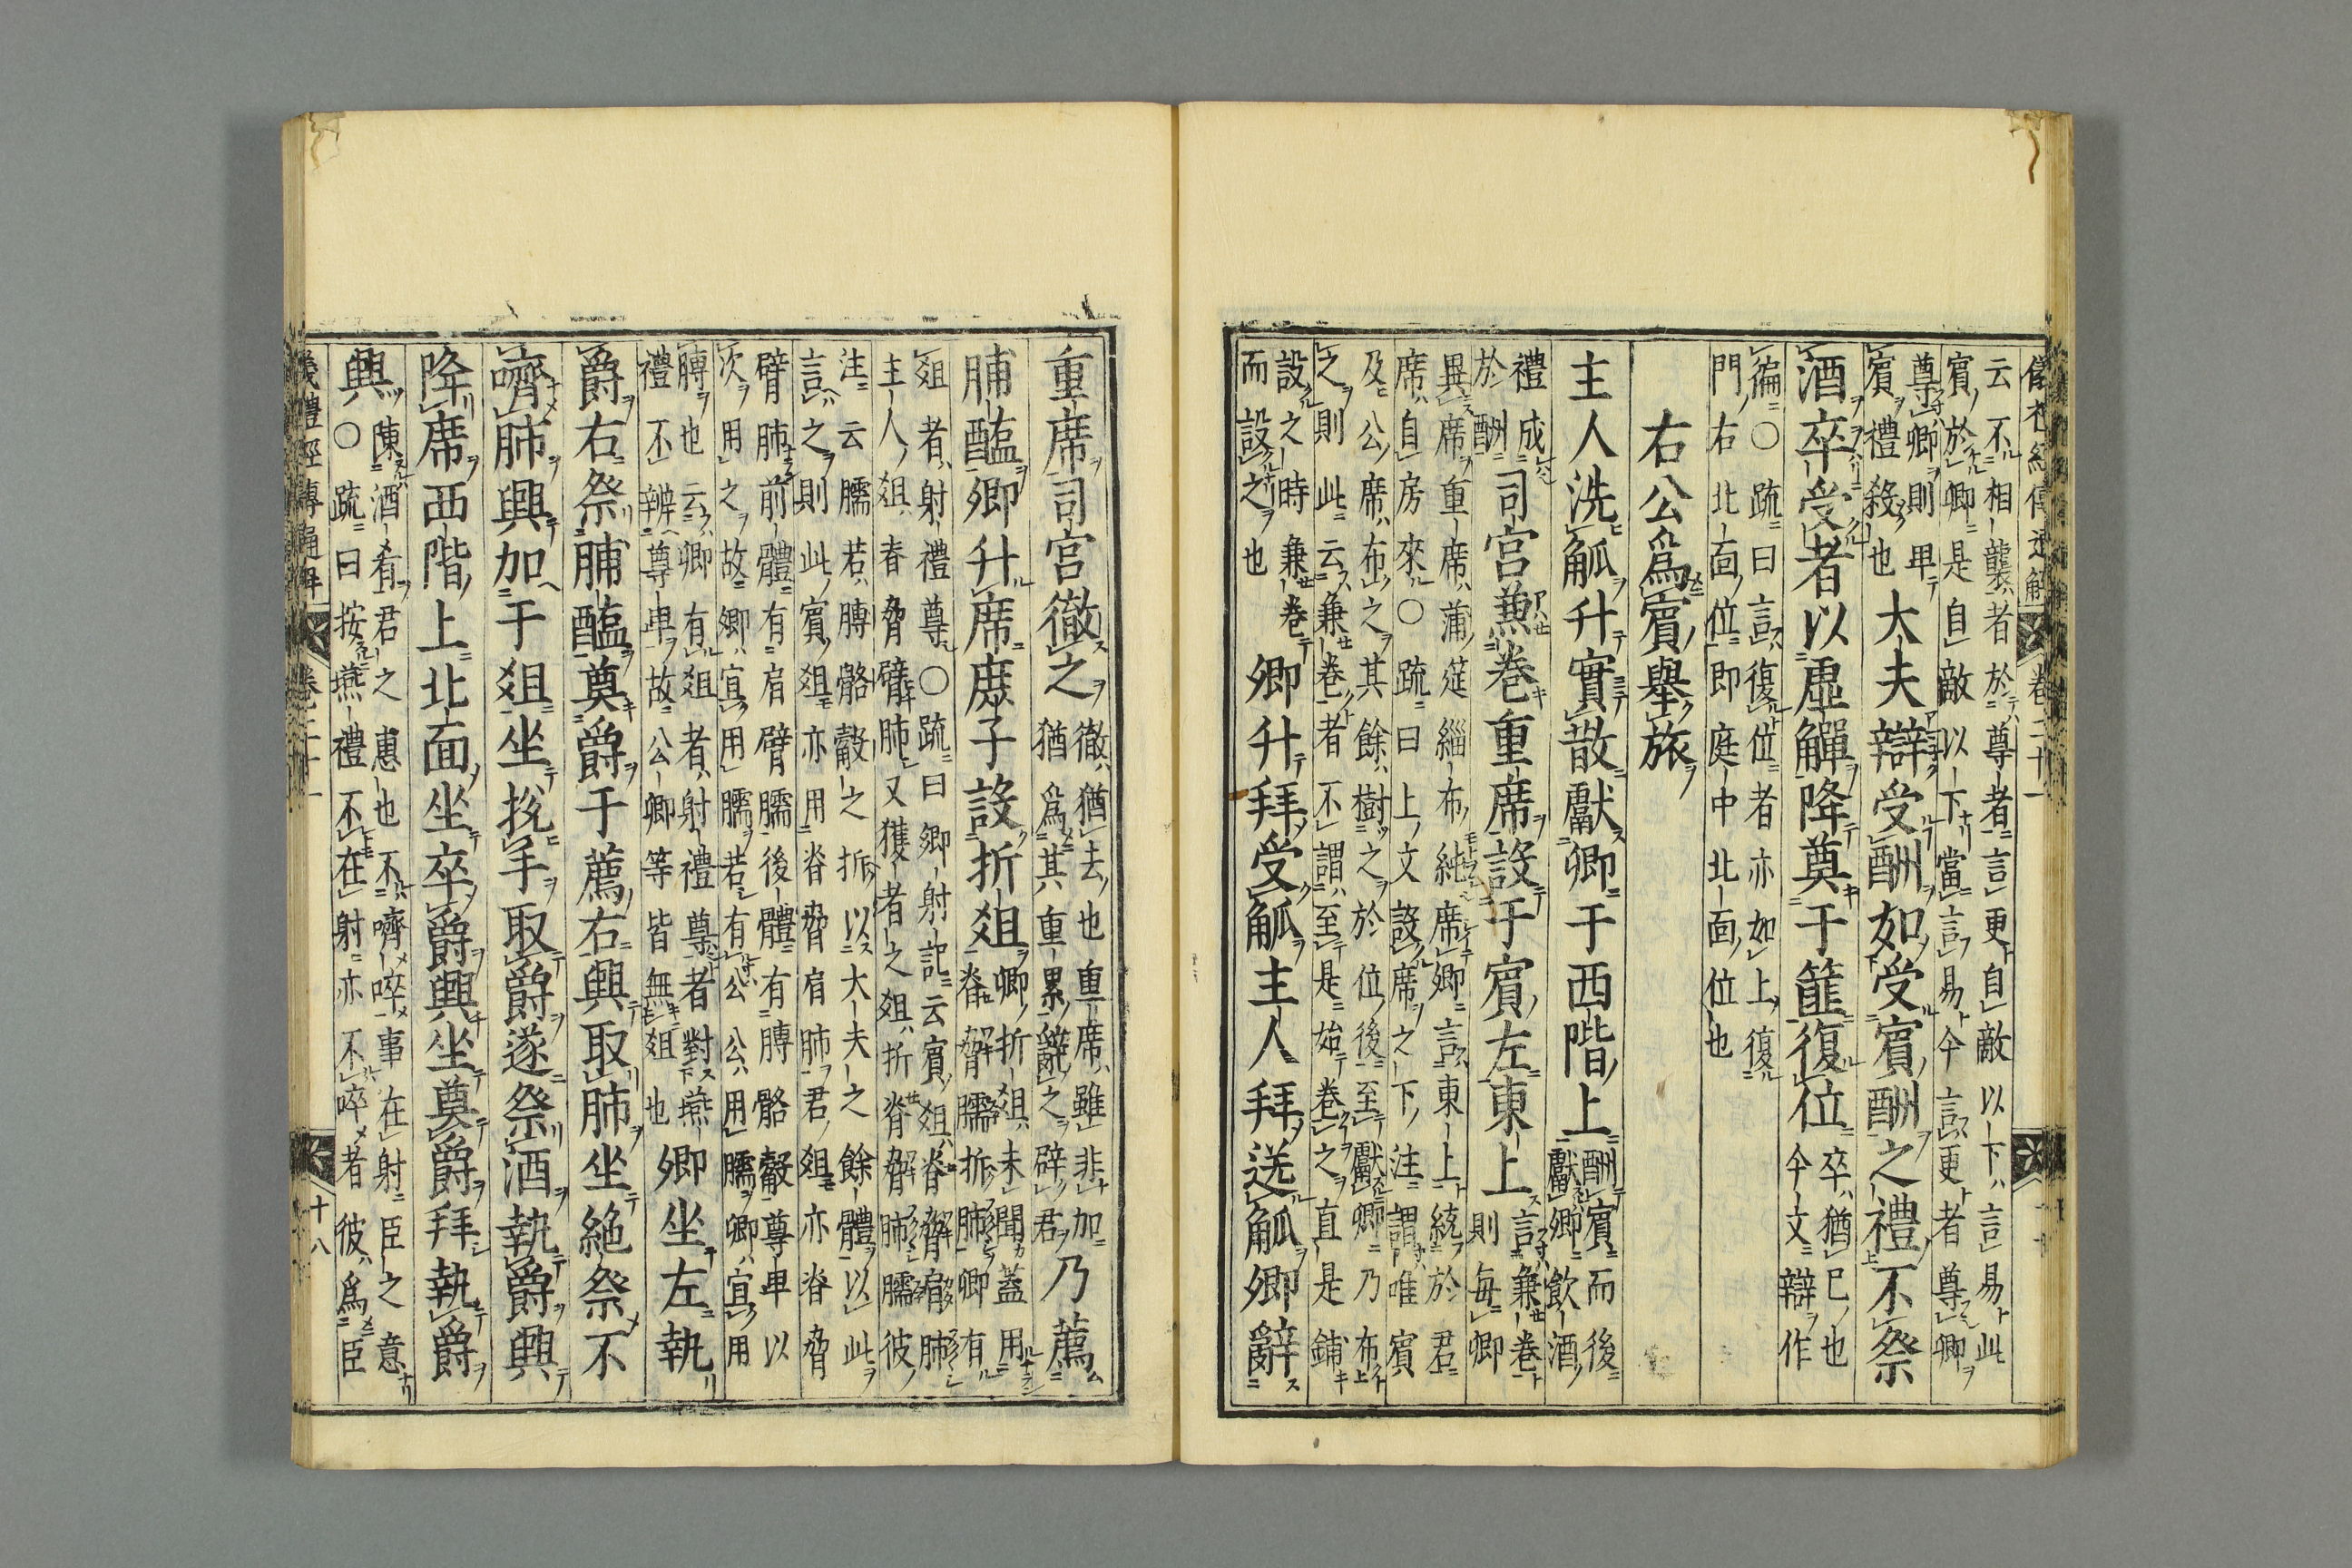 儀禮經傳通解 卷二十一
云不相襲者於尊者言更自敵以下言易此
賓於卿是自敵以下當言易今言更者尊卿
尊卿則卑
賓禮殺也大夫辯受酬如受賓酬之禮不祭
酒卒受者以虛觶降奠于篚復位卒猶已也
今文辯作
徧○疏曰言復位者亦如上復
門右北面位即庭中北面位也
右公爲賓舉旅
主人洗觚升實散獻卿于西階上酬賓而後
獻卿飲酒
禮成
於酬司宮兼卷重席設于賓左東上言兼卷
則每卿
異席重席蒲筵緇布純席卿言東上統於君
席自房來○疏曰上文設席之下注謂唯賓
及公席布之其餘樹之於位後至獻卿乃布
之則此云兼卷者不謂至是始卷之直是鋪
設之時兼卷
而設之也卿升拜受觚主人拜送觚卿辭
重席司宮徹之徹猶去也重席雖非加
猶爲其重累辭之辟君乃薦
脯醢卿升席庶子設折俎卿折俎未聞蓋用
脊脅臑折肺卿有
俎者射禮尊○疏曰卿射記云賓俎脊脅肩肺
主人俎春脅臂肺又獲者之俎折脊脅肺臑彼
注云臑若膊骼觳之折以大夫之餘體以此
言之則此賓俎亦用脊脅肩肺君俎亦脊脅
臂肺前體有肩臂臑後體有膊骼觳尊卑以
次用之故卿宜用臑若有公公用臑卿宜用
膊也云卿有俎者射禮尊者對燕
禮不辨尊卑故公卿等皆無俎也卿坐左執
爵右祭脯醢奠爵于薦右興取肺坐絶祭不
嚌肺興加于俎坐挩手取爵遂祭酒執爵興
降席西階上北面坐卒爵興坐奠爵拜執爵
興陳酒肴君之惠也不嚌啐事在射臣之意
○疏曰按燕禮不在射亦不啐者彼爲臣
儀禮經傳通解 卷二十一 十八